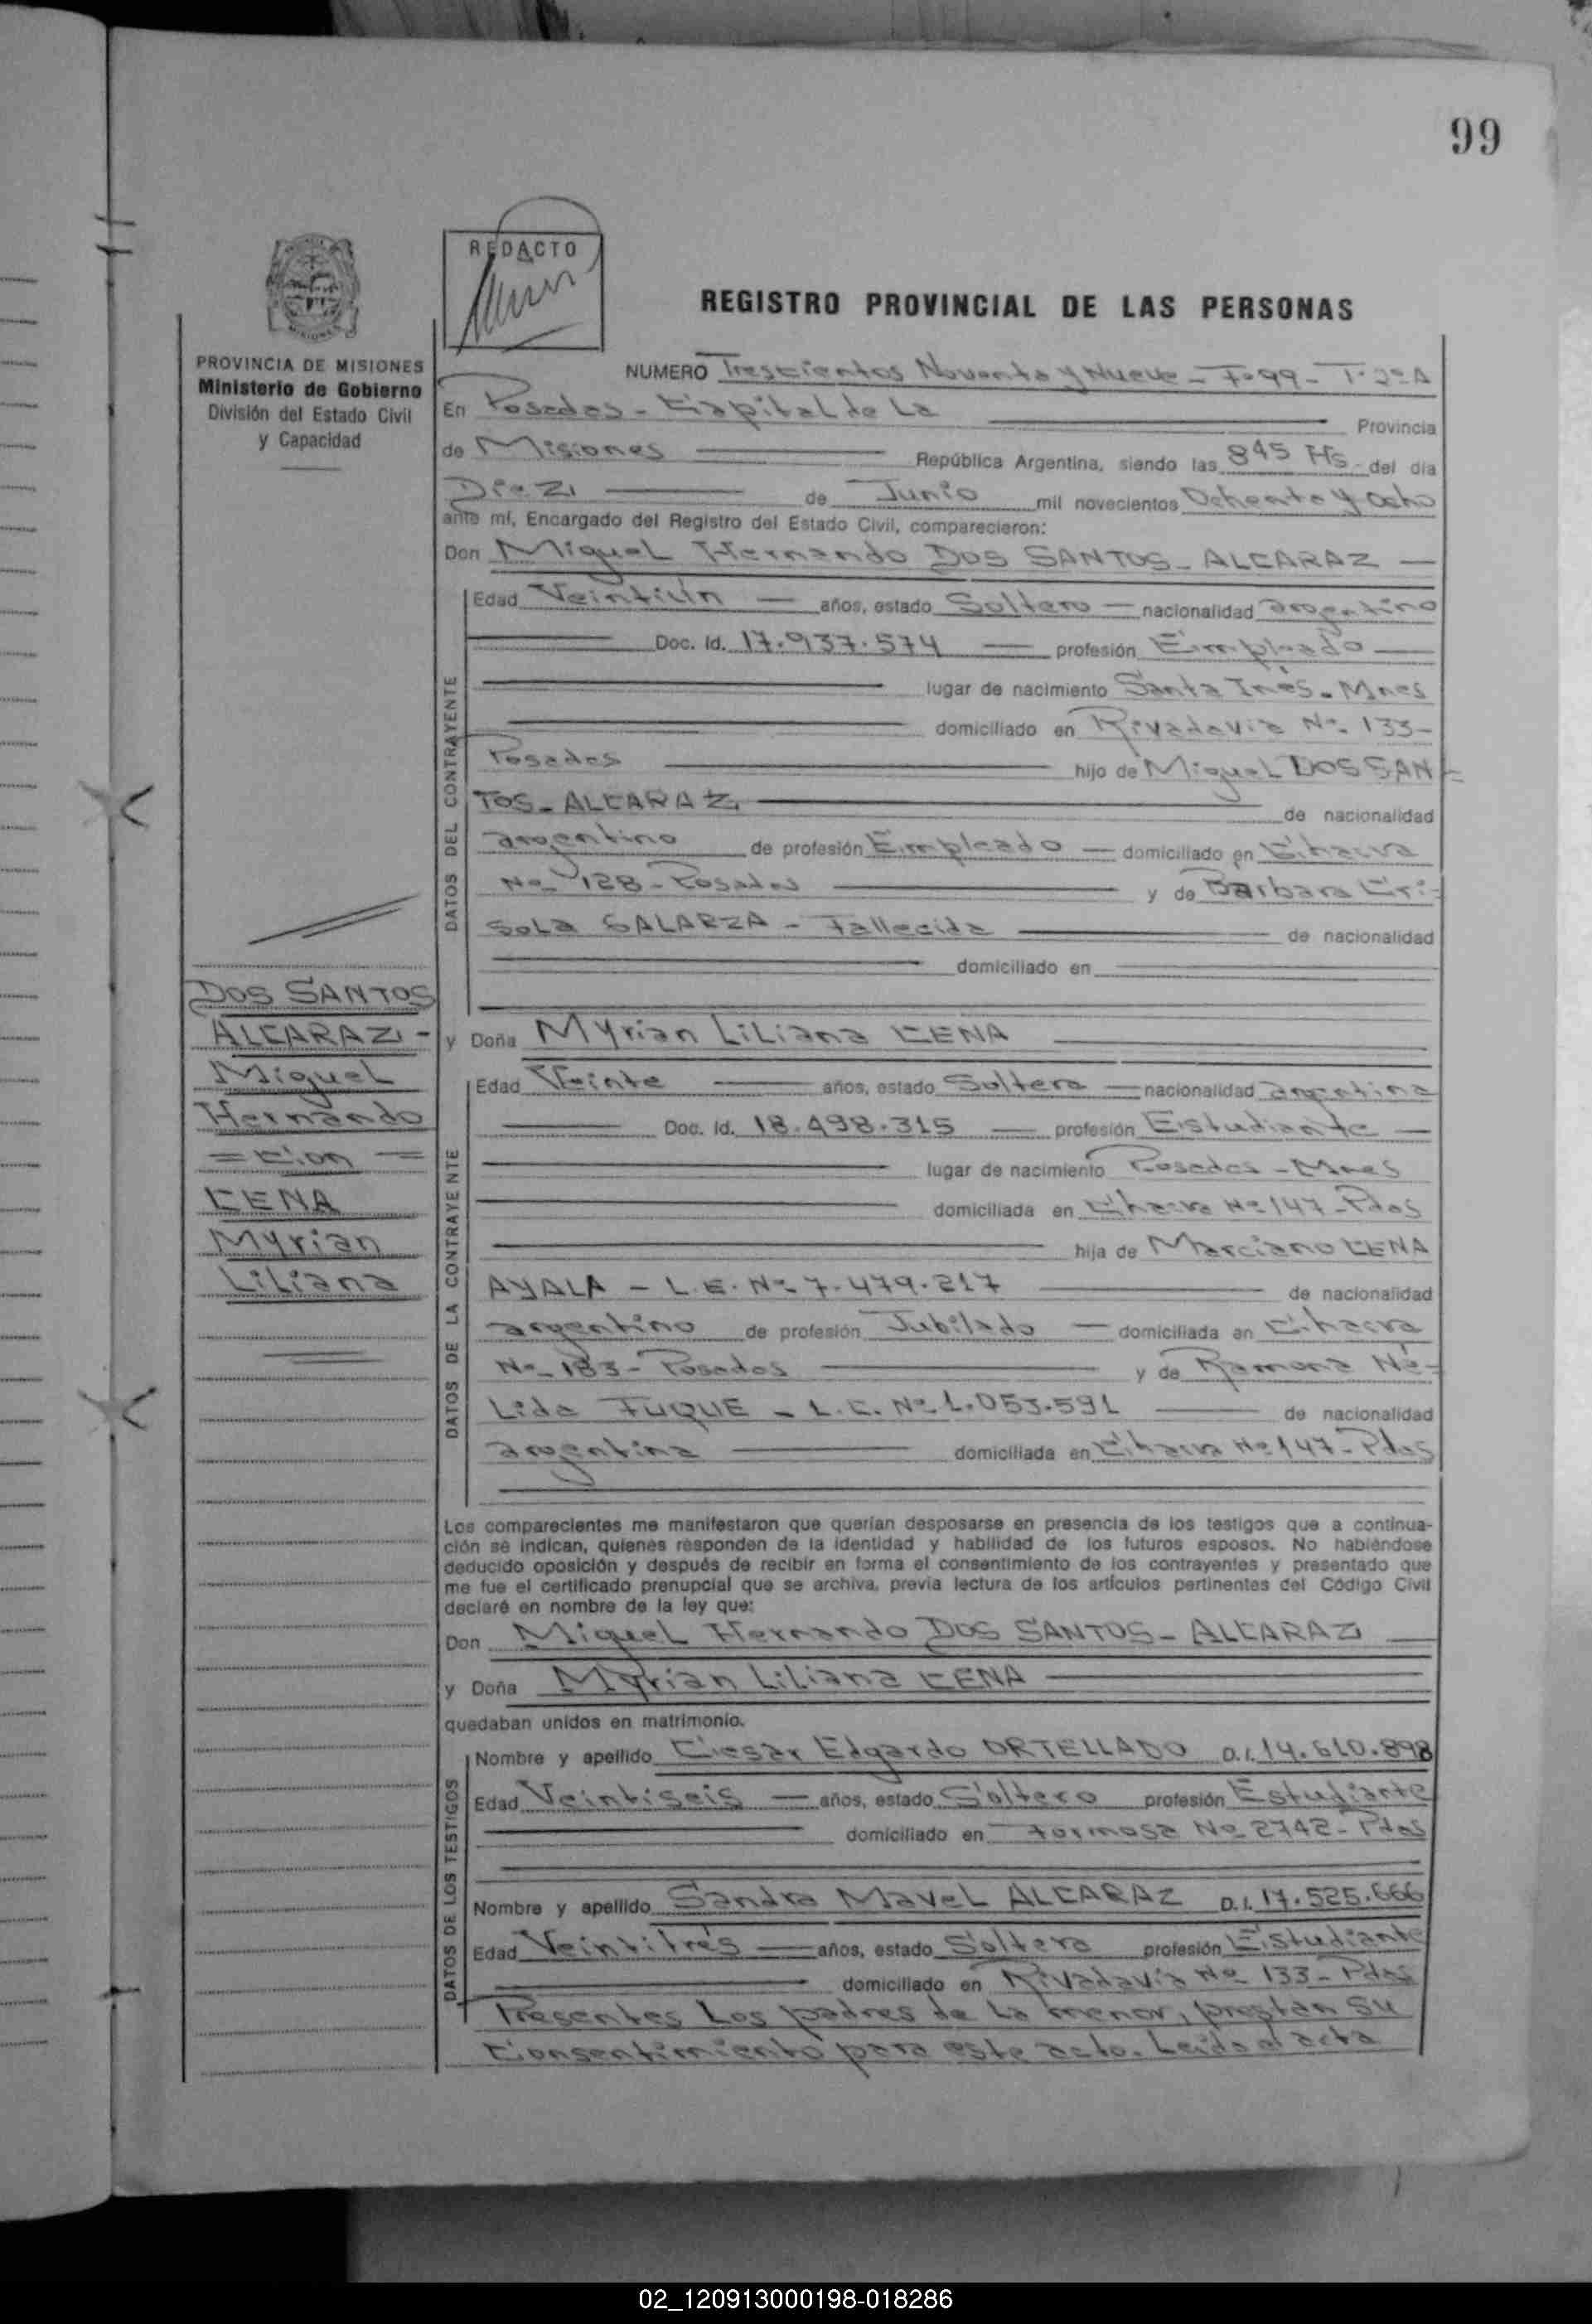 99
REDACTO
REGISTRO PROVINCIAL DE LAS PERSONAS
PROVINCIA DE MISIONES
Ministerio de Gobierno
División del Estado Civil
y Capacidad
NUMERO Trescientos Noventa y Nueve - F° 99 - T° 2° A
En Posadas - Capital de La Provincia
de Misiones República Argentina, siendo las 845 Hs. del día
Diez de Junio mil novecientos Ochenta y Ocho
ante mí, Encargado del Registro del Estado Civil, comparecieron:
Don Miguel Hernando DOS SANTOS - ALCARAZ
DATOS DEL CONTRAYENTE
Edad Veintiún años, estado Soltero nacionalidad argentino
Doc. Id. 17.937.574 profesión Empleado
lugar de nacimiento Santa Inés - Mnes
domiciliado en Rivadavia Nº 133 -
Posadas hijo de Miguel DOS SAN=
TOS - ALCARAZ de nacionalidad
argentino de profesión Empleado domiciliado en Chacra
Nº 128 - Posadas y de Barbara Cri-
sola GALARZA - Fallecida de nacionalidad
domiciliado en
DOS SANTOS
ALCARAZ -
Miguel
Hernando
= con =
CENA
Myrian
Liliana
y Doña Myrian Liliana CENA
DATOS DE LA CONTRAYENTE
Edad Veinte años, estado Soltera nacionalidad argentina
Doc. Id. 18.498.315 profesión Estudiante
lugar de nacimiento Posadas - Mnes
domiciliada en Chacra Nº 147 - Pdas
hija de Marciano CENA
AYALA - L.E. Nº 7.479.217 de nacionalidad
argentino de profesión Jubilado domiciliada en Chacra
Nº 183 - Posadas y de Ramona Né-
Lida FUQUE - L.C. Nº 1.053.591 de nacionalidad
argentina domiciliada en Chacra Nº 147 - Pdas
Los comparecientes me manifestaron que querían desposarse en presencia de los testigos que a continua-
ción se indican, quienes responden de la identidad y habilidad de los futuros esposos. No habiéndose
deducido oposición y después de recibir en forma el consentimiento de los contrayentes y presentado que
me fue el certificado prenupcial que se archiva, previa lectura de los artículos pertinentes del Código Civil
declaré en nombre de la ley que:
Don Miguel Hernando DOS SANTOS - ALCARAZ
y Doña Myrian Liliana CENA
quedaban unidos en matrimonio.
DATOS DE LOS TESTIGOS
Nombre y apellido Cesar Edgardo ORTELLADO D.I. 14.610.898
Edad Veintiseis años, estado Soltero profesión Estudiante
domiciliado en Formosa Nº 2742 - Pdas
Nombre y apellido Sandra Mavel ALCARAZ D.I. 17.525.666
Edad Veintitrés años, estado Soltera profesión Estudiante
domiciliado en Rivadavia Nº 133 - Pdas
Presentes Los padres de La menor, prestan su
Consentimiento para este acto. Leída el acta
02_120913000198-018286